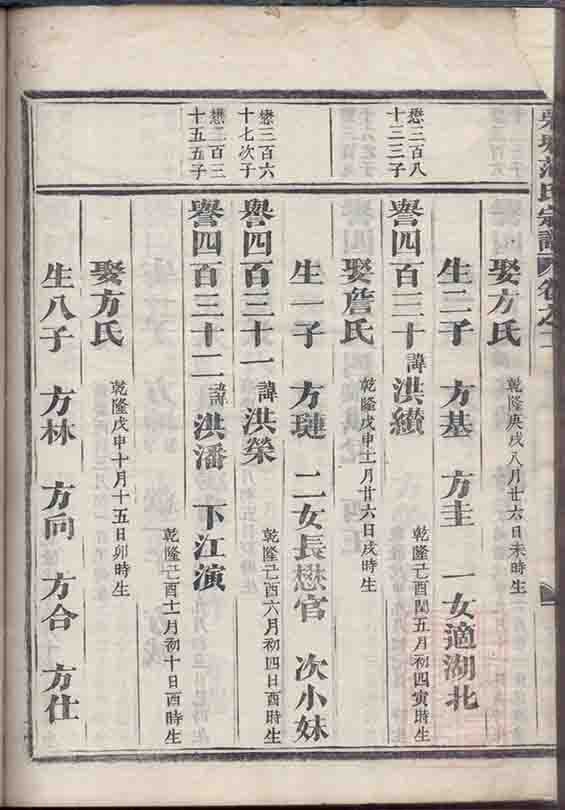 范氏宗譜 卷之二
娶方氏 乾隆庚戌八月廿六日未時生
生二子 方基 方圭 一女適湖北
懋三百八十三子
譽四百三十 諱洪纘 乾隆己酉閏五月初四寅時生
娶詹氏 乾隆戊申十一月廿六日戌時生
生一子 方璉 二女長懋官 次小妹
懋三百六十七次子
譽四百三十一 諱洪榮 乾隆己酉六月初四日酉時生
懋二百三十五五子
譽四百三十二 諱洪潘 下江演 乾隆己酉十一月初十日酉時生
娶方氏 乾隆戊申十月十五日卯時生
生八子 方林 方向 方合 方仕